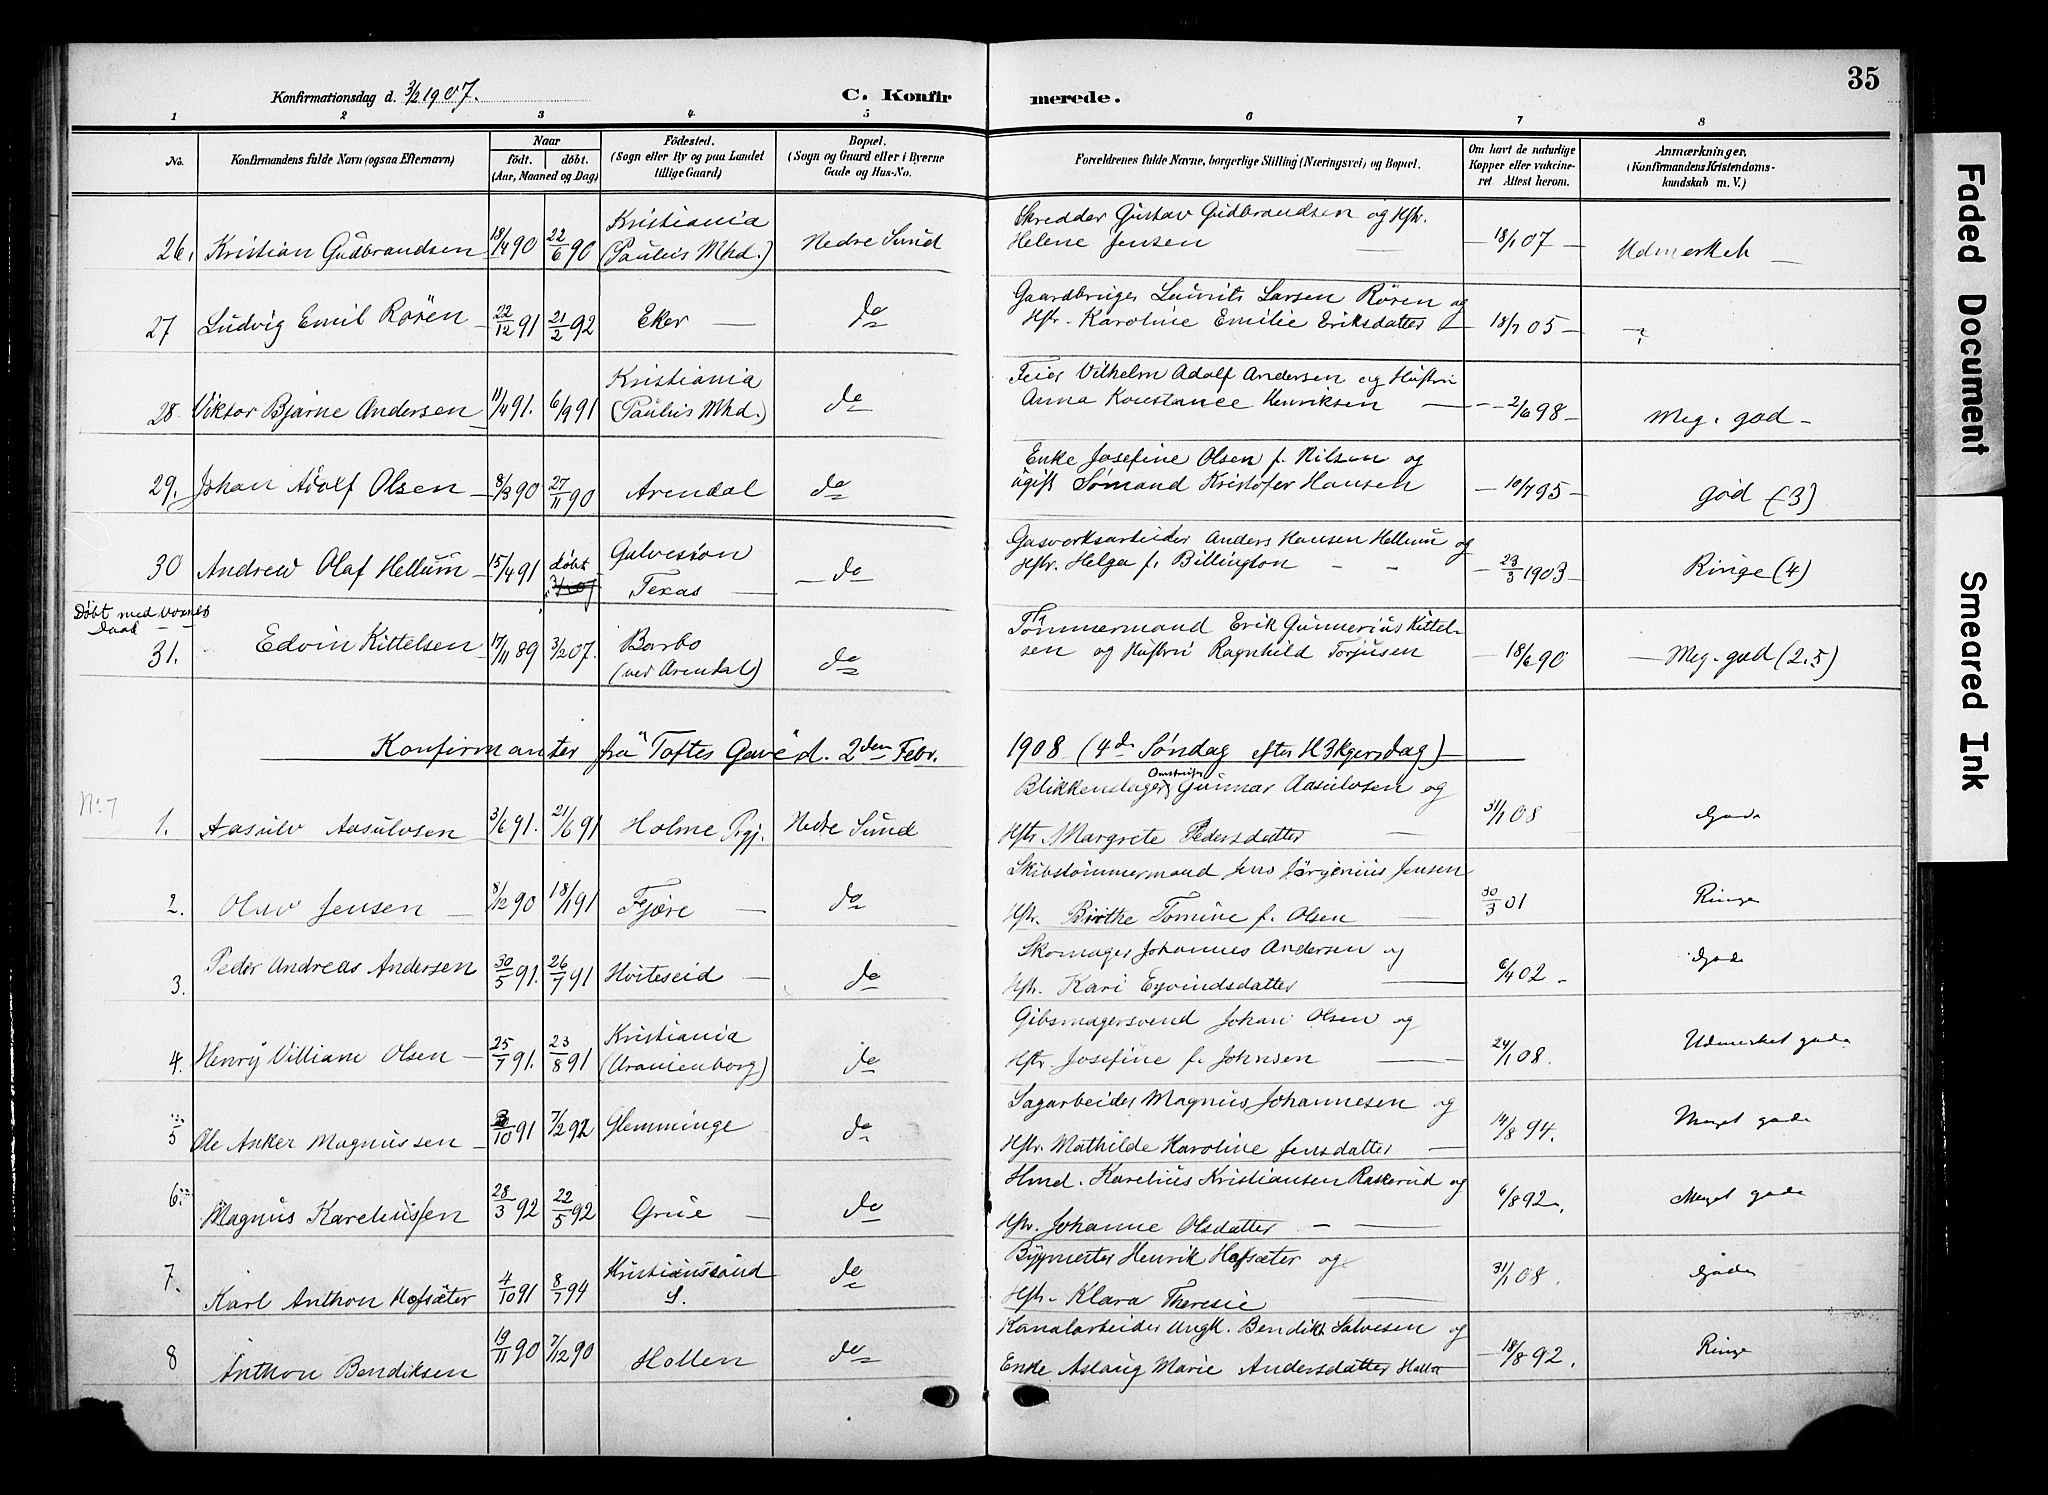 35
Konfirmationsdag d. 3/2 1907.
C. Konfirmerede.
1 2 3 4 5 6 7 8
No.
Konfirmandens fulde Navn (ogsaa Efternavn)
Naar
født. døbt.
(Aar, Maaned og Dag)
Fødested.
(Sogn eller By og paa Landet
tillige Gaard)
Bopæl.
(Sogn og Gaard eller i Byerne
Gade og Hus-No.
Forældrenes fulde Navne, borgerlige Stilling (Næringsvei) og Bopæl.
Om havt de naturlige
Kopper eller vakcine-
ret Attest herom.
Anmærkninger,
(Konfirmandens Kristendoms-
kundskab m. V.)
26. Kristian Gudbrandsen 18/4 90 22/6 90 Kristiania (Paulus Mhd.) Nedre Sund
Skredder Gustav Gudbrandsen og Hstr.
Helene Jensen — 18/1 07 — Udmerket —
27 Ludvig Emil Røren — 22/12 91 21/2 92 Eker — do
Gaardbruger Laurits Larsen Røren og
Hstr. Karoline Emilie Eriksdatter — 18/7 05 —
28. Viktor Bjarne Andersen 11/4 91. 6/9 91 Kristiania (Paulus Mhd.) do
Feier Vilhelm Adolf Andersen og Hustru
Anna Konstance Henriksen — 2/6 98 — Meg. god —
29. Johan Adolf Olsen — 8/3 90 27/11 90 Arendal do
Enke Josefine Olsen f. Nilsen og
ugift Sømand Kristofer Hansen — 10/7 95 — god (3)
30 Andrew Olaf Hellum — 15/4 91 døbt Galveston Texas — — do
Gasverksarbeider Anders Hansen Hellum og
Hstr. Helga f. Billington — — 23/3 1903 — Ringe (4)
Døbt med Voxnes
Daab —
31. Edvin Kittelsen 17/11 89 3/2 07. Barbo (ved Arendal) do
Tømmermand Erik Gunnerius Kittel-
sen og Hustru Ragnhild Torjusen — 18/6 90 — Meg. god (2.5)
Konfirmanter fra "Toftes Gave" d. 2den Febr. 1908 (4de Søndag efter H3kgersdag) —
No. 7
1. Aasulv Aasulvsen 3/6 91. 21/6 91 Holme Prgj. Nedre Sund
Blikkenslager Gunnar Aasulvsen og
Hstr. Margrete Pedersdatter — 31/1 08 Gode
2. Olav Jensen — 8/12 90 18/1 91 Fjære — do
Skibstømmermand Jens Jørgenius Jensen
Hstr. Birthe Tomine f. Olsen — 30/3 01 Ringe
3. Peder Andreas Andersen 30/5 91. 26/7 91 Hviteseid — do
Skomager Johannes Andersen og
Hstr. Kari Eyvindsdatter — 6/4 02 — Gode
4. Henry Villiam Olsen — 25/7 91. 23/8 91 Kristiania (Uranienborg) do
Gibsmagersvend Johan Olsen og
Hstr. Josefine f. Johnsen — 24/1 08. Udmerket gode
5 Ole Anker Magnussen — /10 91 7/2 92 Glemminge do
Sagarbeider Magnus Johannesen og
Hstr. Mathilde Karoline Jensdatter — 14/8 94. Meget gode
6. Magnus Kareliussen 28/3 92 22/5 92 Grue — do
Hmd. Karelius Kristiansen Raskerud og
Hstr. Johanne Olsdatter — — 6/8 92. Meget gode
7. Karl Anthon Hofsæter 4/10 91 8/7 94 Kristianssund S. do
Bygmester Henrik Hofsæter og
Hstr. Klara Theresie — 31/1 08. Gode
8 Anthon Bendiksen 19/11 90 7/12 90 Hollen do
Kanalarbeider Ungk. Bendikt Salvesen og
Enke Aslaug Marie Andersdatter Holla — 18/8 92. Ringe
Faded Document
Smeared Ink